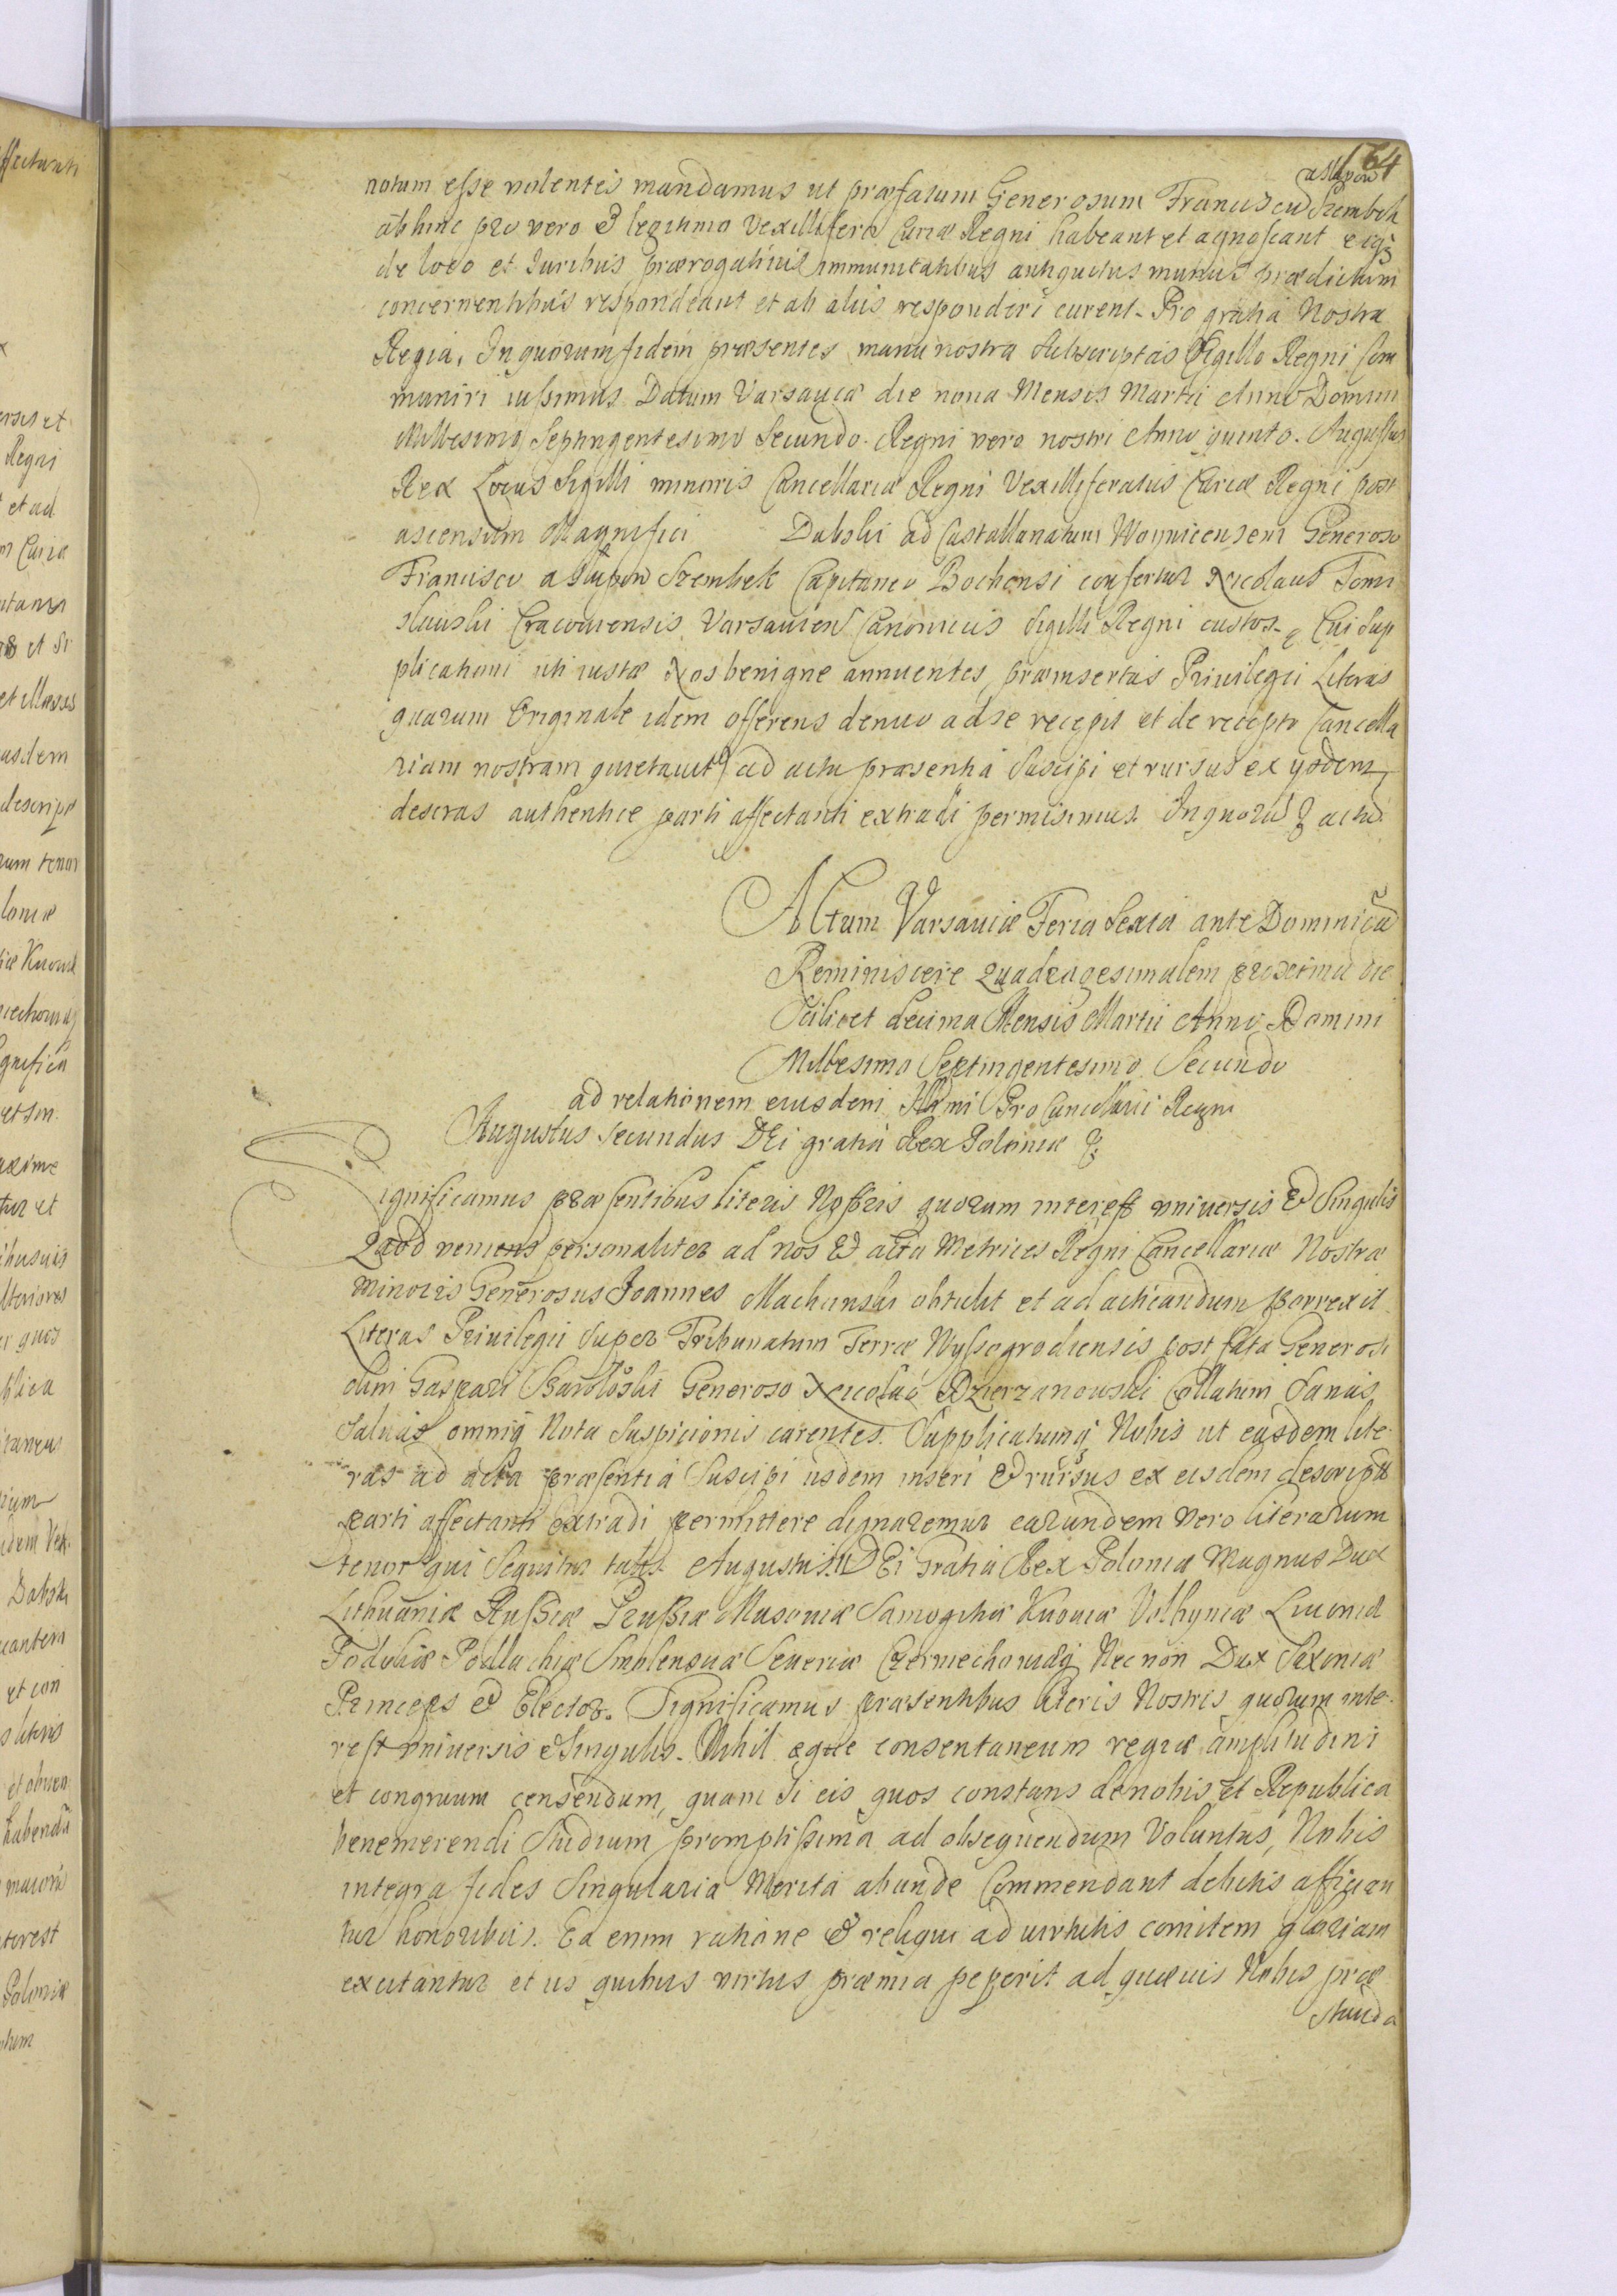 164
a Słupow
notum esse volentes mandamus ut præfatum Generosum Franciscũ Szembek
abhinc pro vero & legitimo Vexillifero Curiæ Regni habeant et agnoscant eiqȝ
de loco et Iuribus prærogatiuis immunitatibus antiquitus munus prædictum
concernentibus respondeant et ab aliis responderi curent. Pro gratia Nostra
Regia. In quorum fidem præsentes manu nostra subscriptas Sigillo Regni com
muniri iussimus. Datum Varsauiæ die nona Mensis Martii Anno Domini
Millesimo Septingentesimo Secundo. Regni vero nostri Anno quinto. Augustus
Rex Locus Sigilli minoris Cancellariæ Regni Vexilliferatus Curiæ Regni post
ascensum Magnifici Dąbski ad Castellanatum Woynicensem Generoso
Francisco a Słupow Szembek Capitaneo Bochensi confertur Nicolaus Tomi
sławski Cracouiensis Varsauien Canonicus Sigilli Regni custos. Cui sup
plicationi uti iustæ Nos benigne annuentes præinsertas Priuilegii Literas
quarum Originale idem offerens denuo ad se recepit et de recepto Cancella
riam nostram quietauit ad acta præsentia Suscipi et rursus ex ysdem
descras authentice parti affectanti extradi permisimus. In quorũ & actũ
Actum Varsauiæ Feria Sexta ante Dominicã
Reminiscere Quadragesimalem proxima die
Scilicet decima Mensis Martii Anno Domini
Millesimo Septingentesimo Secundo
ad relationem eiusdem Illmi Pro Cancellarii Regni
Augustus Secundus DEi gratia Rex Poloniæ &
Significamus præsentibus literis Nostris quorum interest vniuersis & Singulis
Quod veniens personaliter ad nos & acta Metrices Regni Cancellariæ Nostræ
minoris Generosus Joannes Machinski obtulit et ad acticandum porrexit
Literas Priuilegii Super Tribunatum Terræ Wyssogrodiensis post fata Generosi
olim Gaspari Generoso Nicolao Dzierzanowski Collatum Sanas
Saluas omniq Nota Suspicionis carentes. Supplicatumq Nobis ut easdem lite
ras ad acta præsentia Suscipi iisdem inseri & rursus ex eisdem descripts
parti affectanti extradi permittere dignaremur earundem vero literarum
tenor qui sequitur talis. Augustus II DEi Gratia Rex Poloniæ Magnus Dux
Lithuaniæ Russiæ Prussiæ Masouiæ Samogitiæ Kiiouiæ Volhyniæ Liuoniæ
Podoliæ Podlachiæ Smolensciæ Seueriæ Czerniechouiæq Nec non Dux Saxoniæ
Princeps & Elector. Significamus præsentibus literis Nostris quorum inte
rest vniuersis & Singulis. Nihil æque consentaneum regiæ amplitudini
et congruum censendum, quam si eis quos constans de nobis et Republica
benemerendi Studium promptissima ad obsequendum Voluntas, Nobis
integra fides Singularia Merita abunde Commendant debitis affician
tur honoribus. Ea enim ratione & reliqui ad virtutis comitem gloriam
excitantur et iis quibus virtus præmia peperit ad quæuis Nobis præ
standa